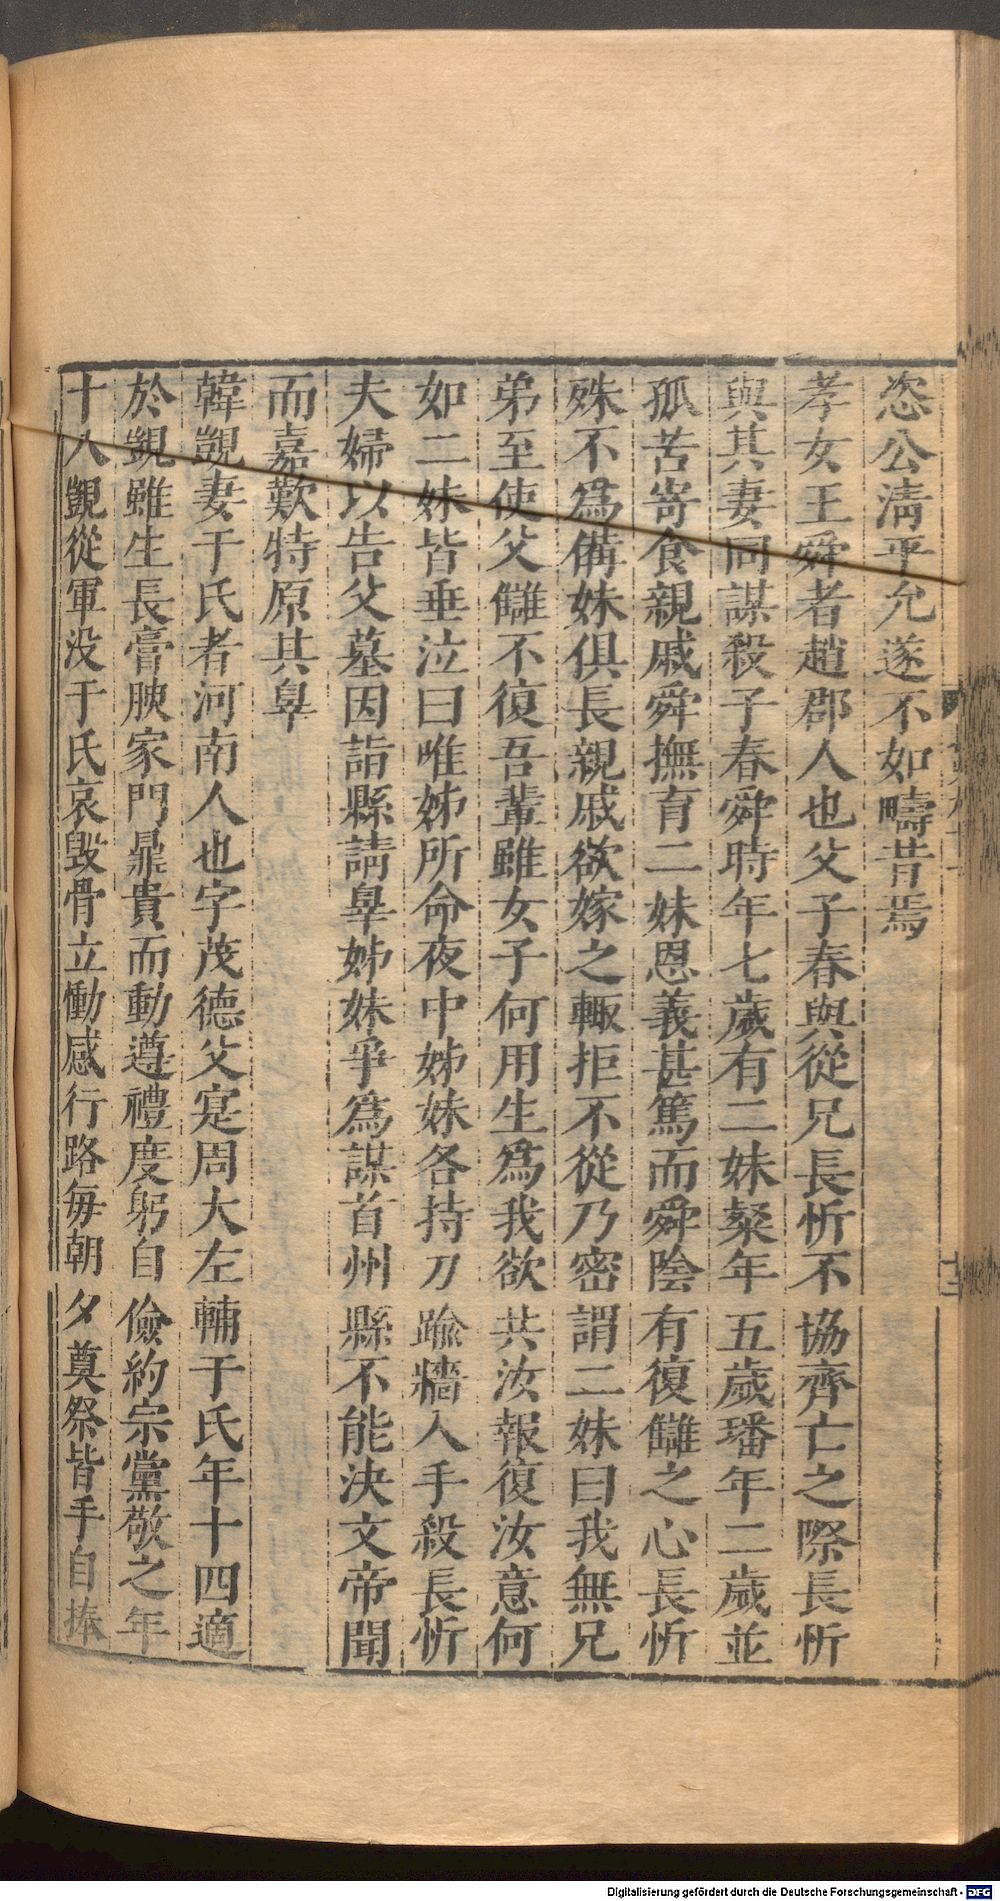 恣公清平允遂不如疇昔焉
孝女王舜者趙郡人也父子春與從兄長忻不協齊亡之際長忻
與其妻同謀殺子春舜時年七歲有二妹粲年五歲璠年二歲並
孤苦寄食親戚舜撫育二妹恩義甚篤而舜陰有復讎之心長忻
殊不爲備妹俱長親戚欲嫁之輙拒不從乃密謂二妹曰我無兄
弟至使父讎不復吾輩雖女子何用生爲我欲共汝報復汝意何
如二妹皆垂泣曰唯姊所命夜中姊妹各持刀踰牆入手殺長忻
夫婦以告父墓因詣縣請辠姊妹爭爲謀首州縣不能決文帝聞
而嘉歎特原其辠
韓覬妻于氏者河南人也字茂德父寔周大左輔于氏年十四適
於覬雖生長膏腴家門鼎貴而動遵禮度躬自儉約宗黨敬之年
十八覬從軍没于氏哀毀骨立慟感行路每朝夕奠祭皆手自捧
十三
Digitalisierung gefördert durch die Deutsche Forschungsgemeinschaft - DFG